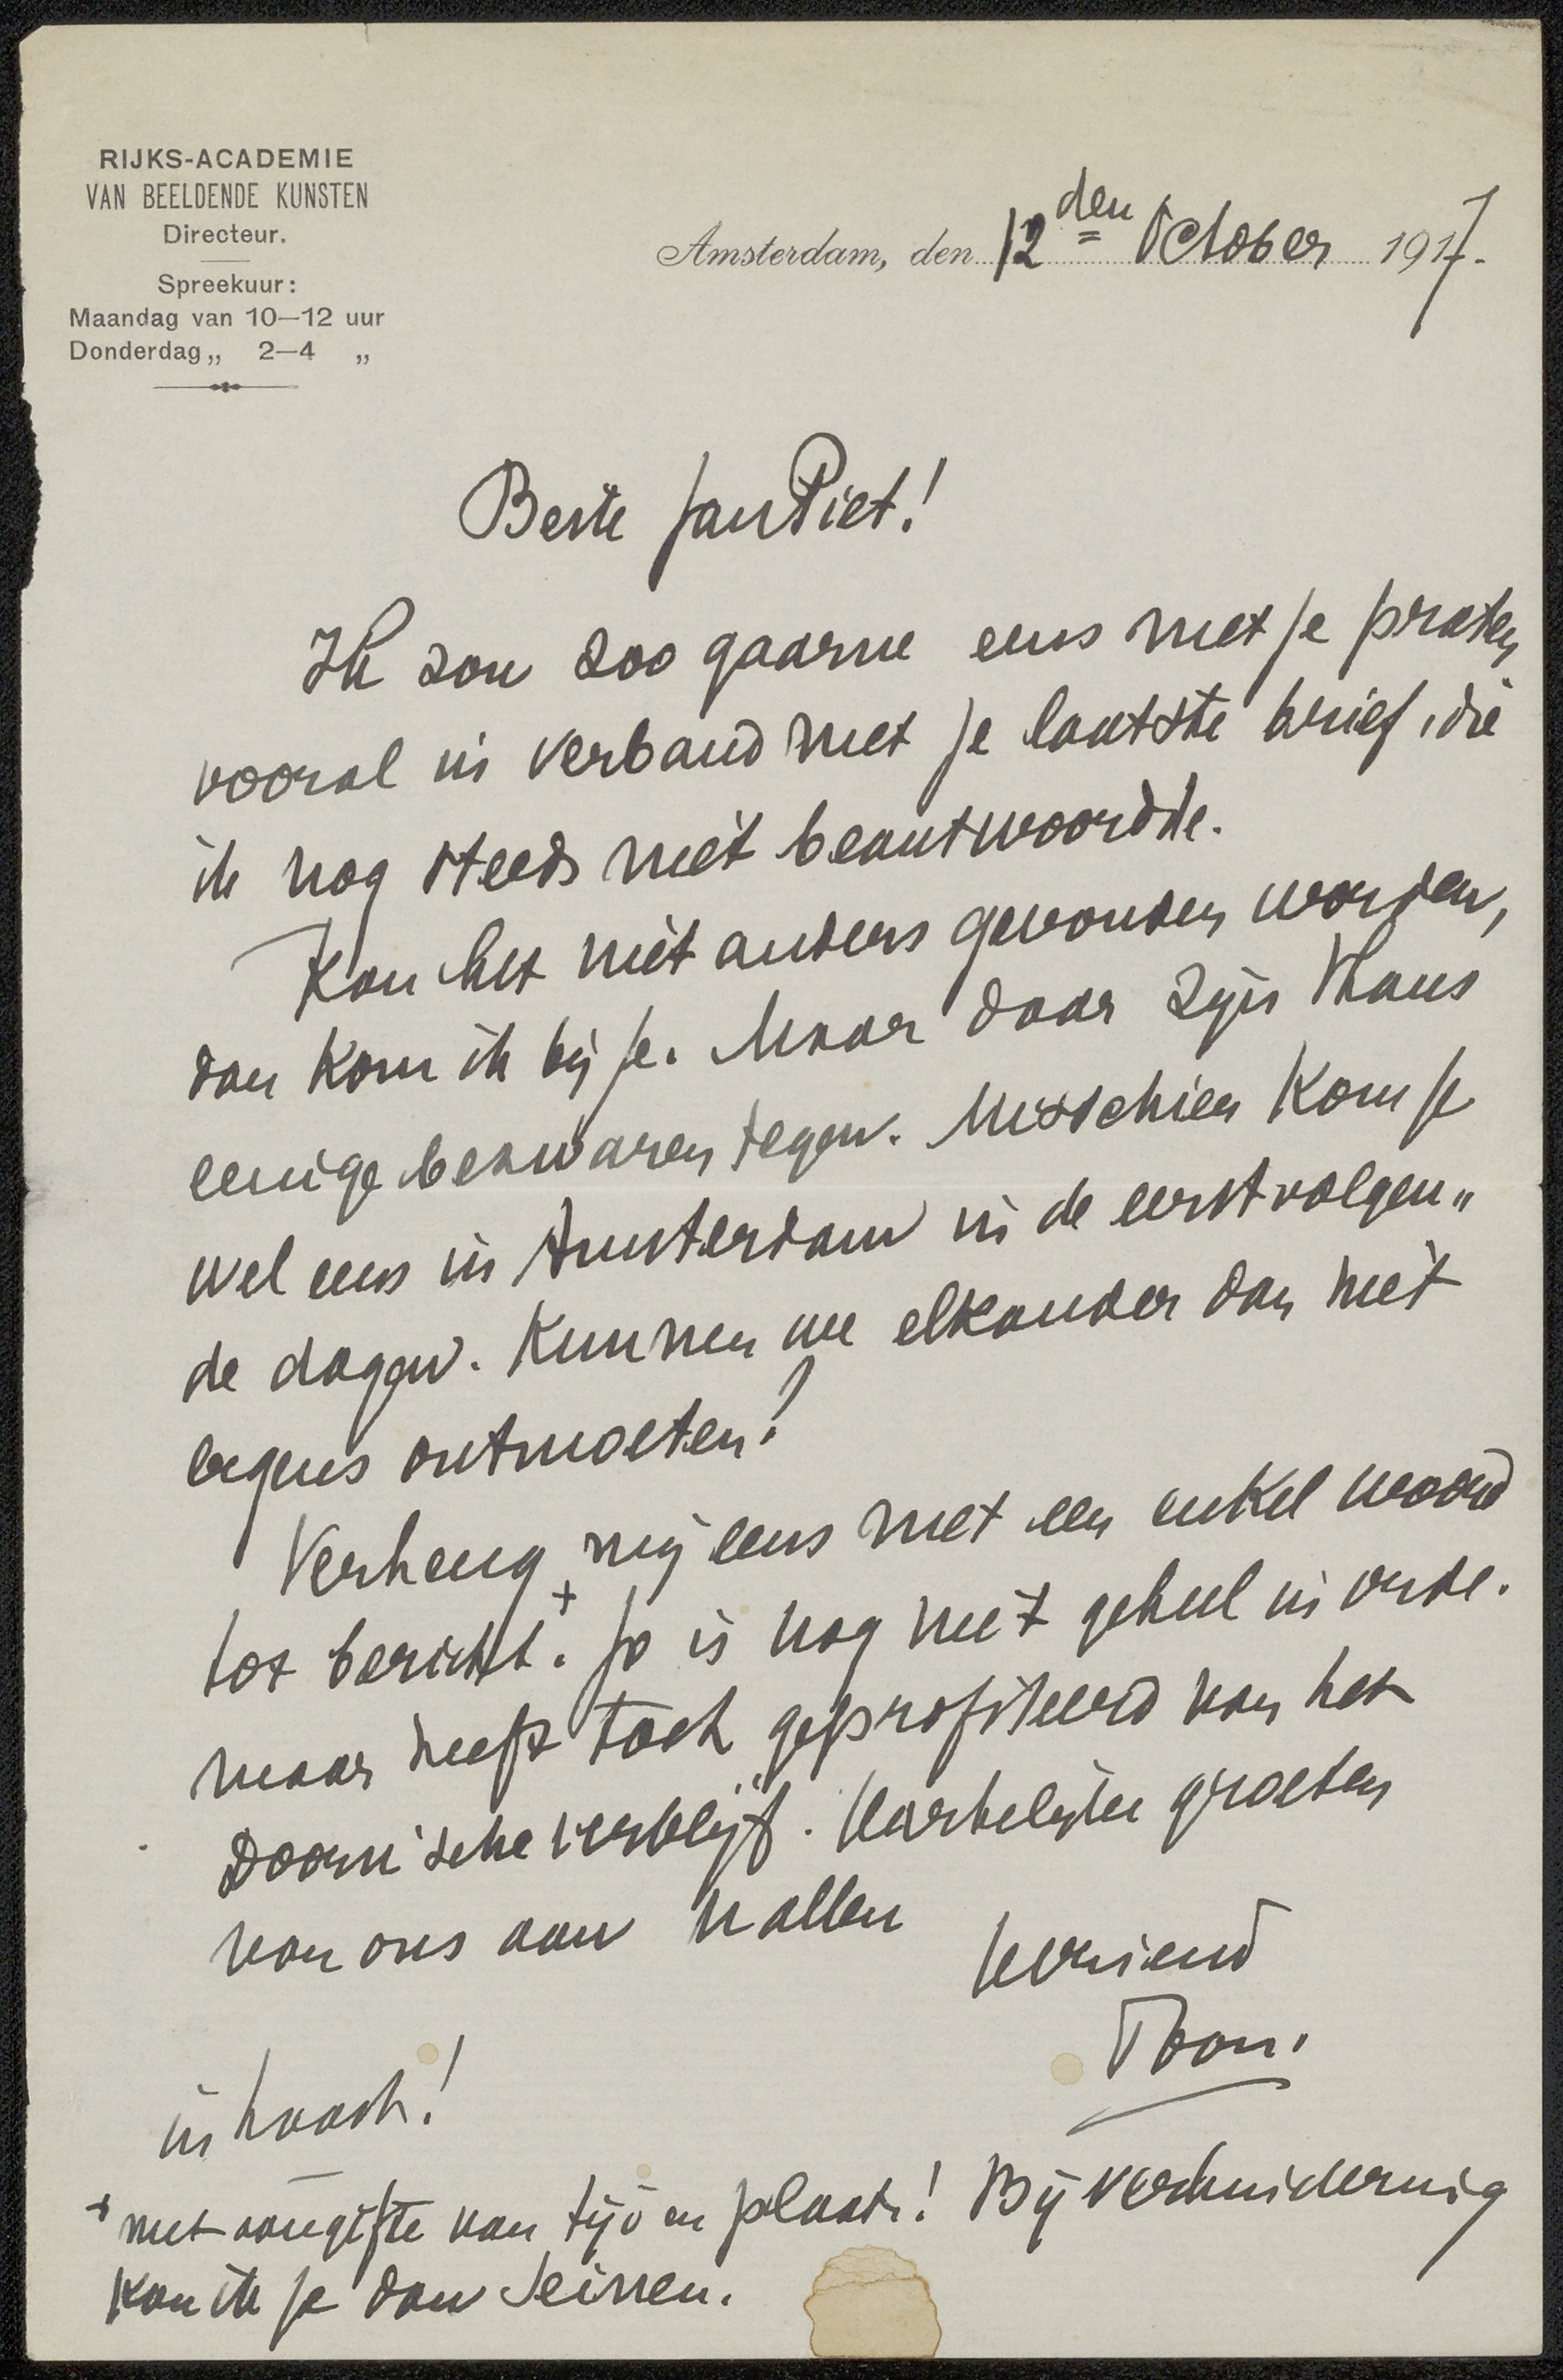 RIJKS-ACADEMIE
VAN BEELDENDE KUNSTEN
Directeur.
Spreekuur:
Maandag van 10—12 uur
Donderdag „ 2—4 „
Amsterdam, den 12den October 1917.
Beste Jan Piet!
Ik zou zoo gaarne eens met je praten,
vooral in verband met je laatste brief, die
ik nog steeds niet beantwoordde.
Kan het niet anders gevonden worden,
dan kom ik bij je. Maar daar zijn thans
eenige bezwaren tegen. Misschien kom je
wel eens in Amsterdam in de eerstvolgen„
de dagen. Kunnen we elkander dan niet
ergens ontmoeten?
Verheug mij eens met een enkel woord
tot bericht.+ Jo is nog niet geheel in orde.
maar heeft toch geprofiteerd van het
Doorn'sche verblijf. Hartelijke groeten
van ons aan U allen
je vriend
Toon.
in haast!
+ met aangifte van tijd en plaats! Bij verhindering
kan ik je dan seinen.